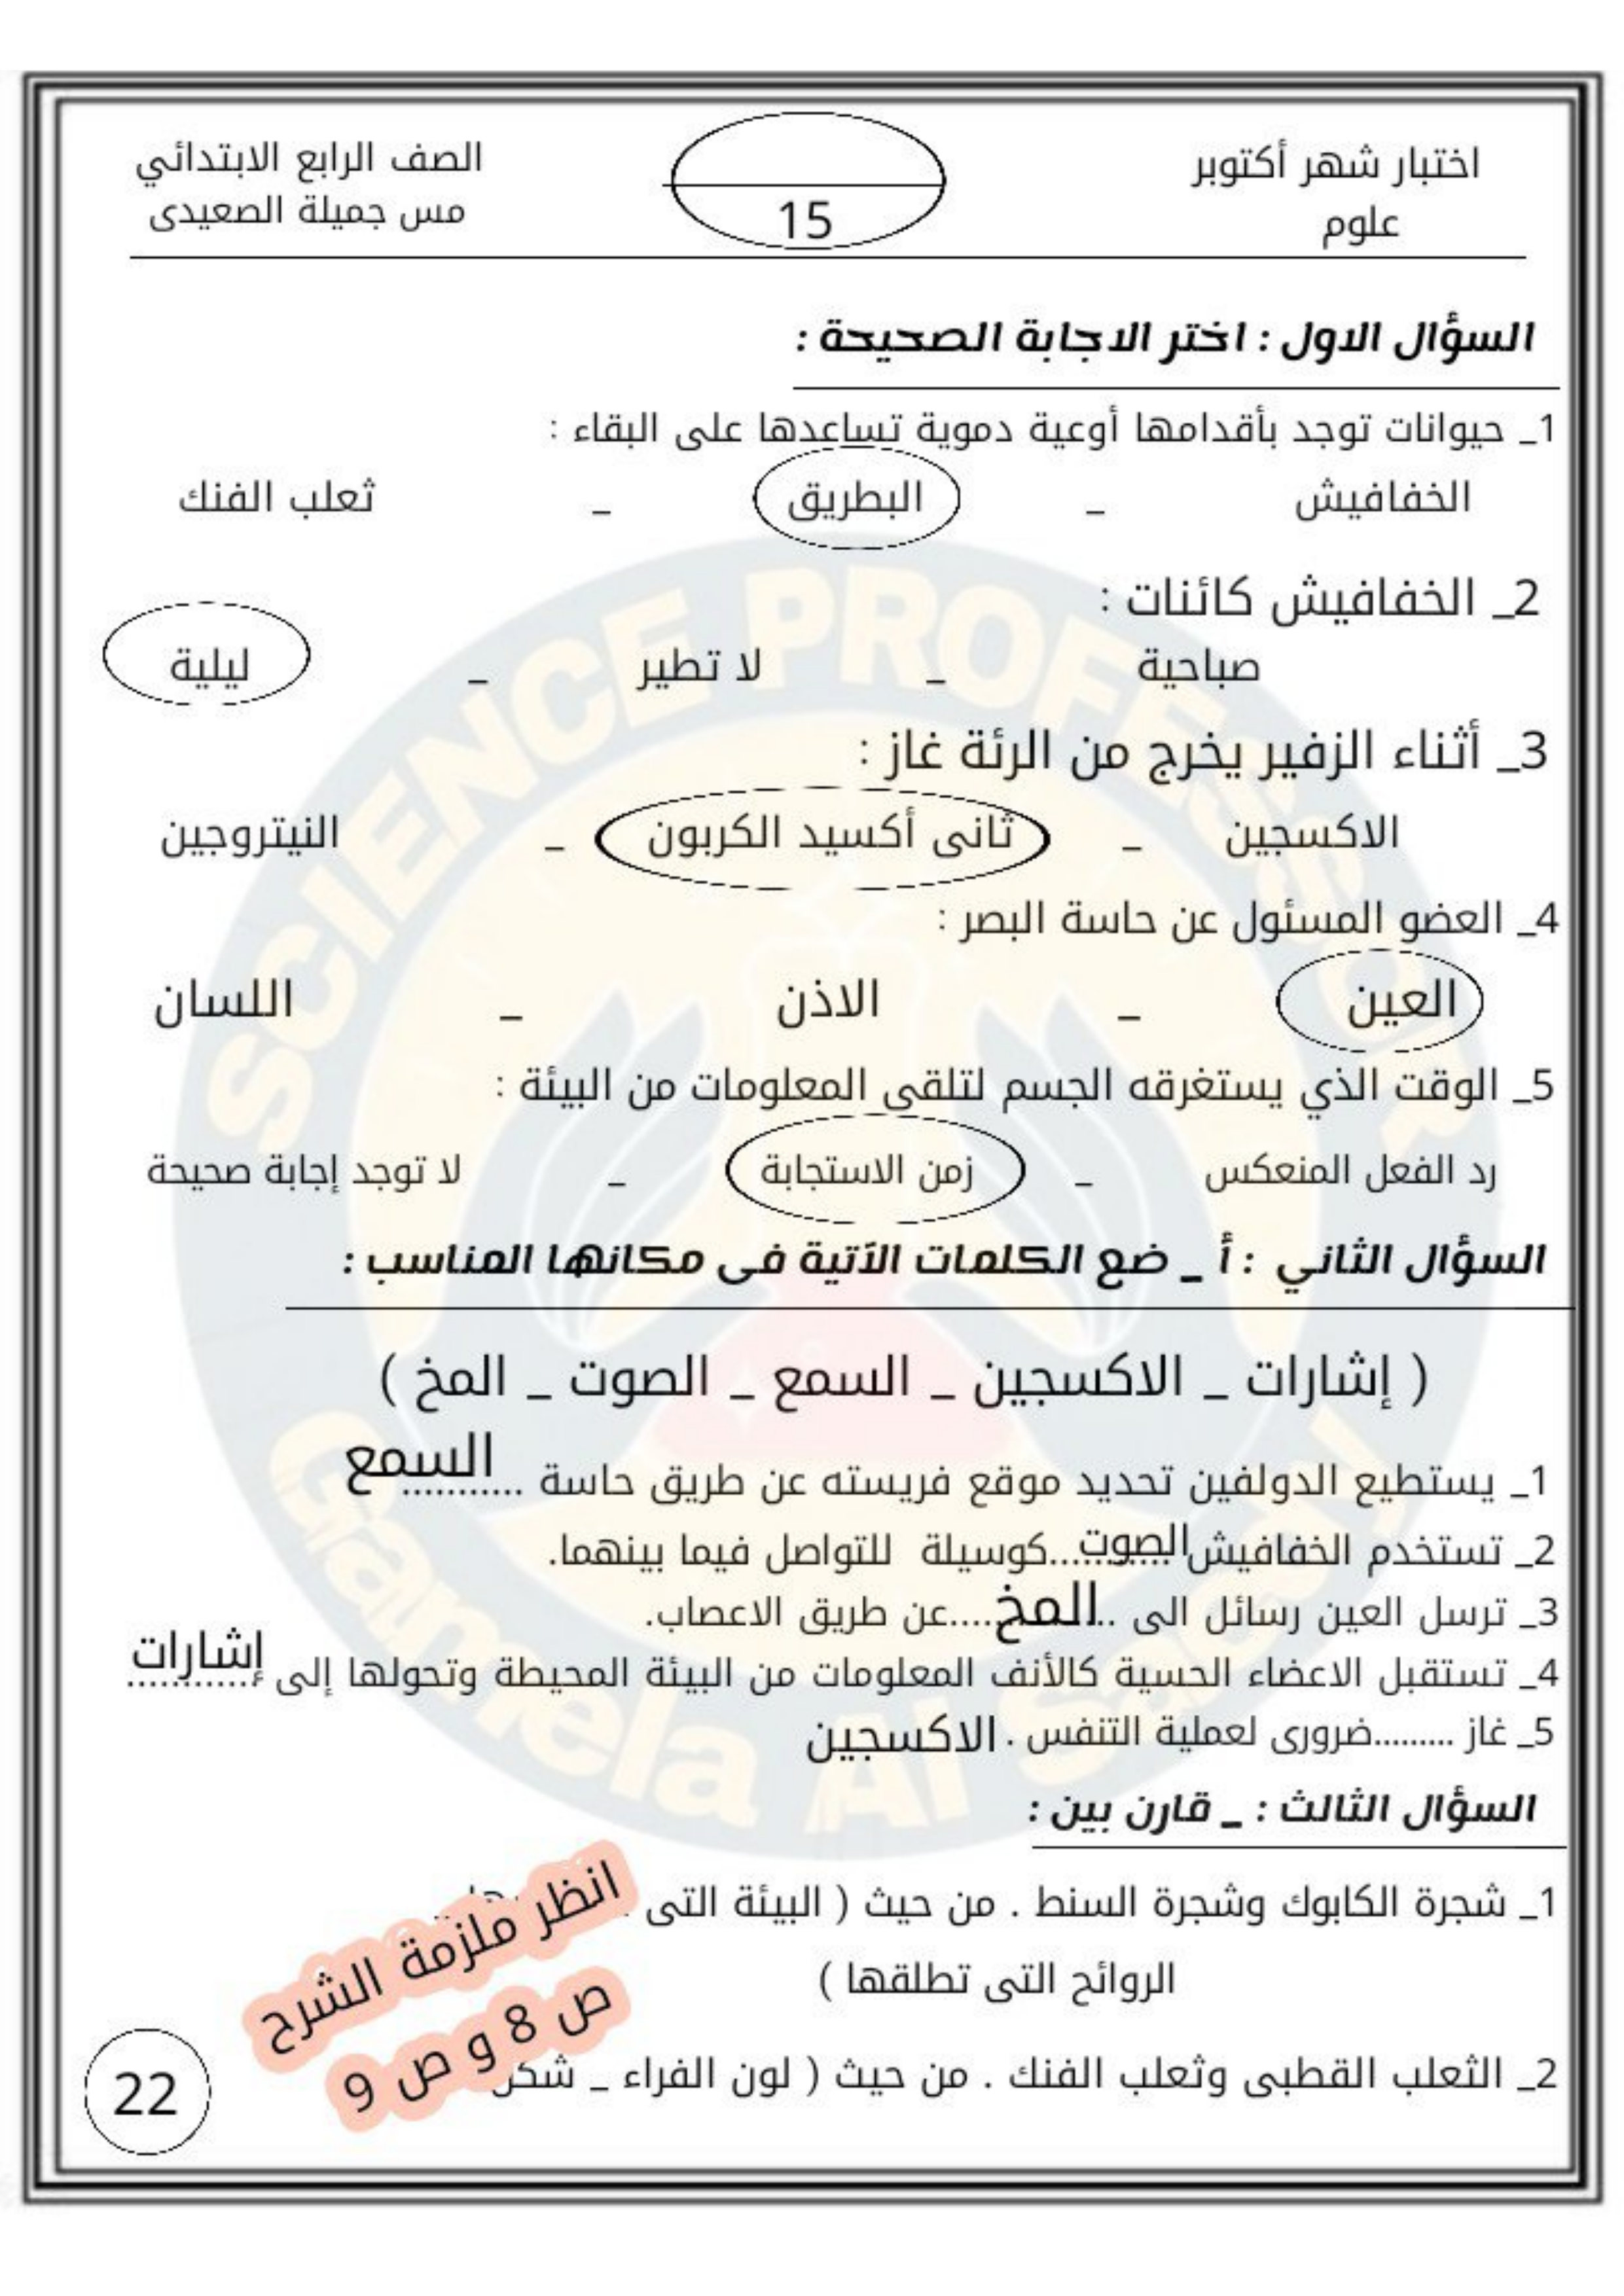 اختبار شهر أكتوبر
علوم
15
الصف الرابع الابتدائي
مس جميلة الصعيدى
السؤال الاول : اختر الاجابة الصحيحة :
1_ حيوانات توجد بأقدامها أوعية دموية تساعدها على البقاء :
الخفافيش _ البطريق _ ثعلب الفنك
2_ الخفافيش كائنات :
صباحية _ لا تطير _ ليلية
3_ أثناء الزفير يخرج من الرئة غاز :
الاكسجين _ ثانى أكسيد الكربون _ النيتروجين
4_ العضو المسئول عن حاسة البصر :
العين _ الاذن _ اللسان
5_ الوقت الذي يستغرقه الجسم لتلقى المعلومات من البيئة :
رد الفعل المنعكس _ زمن الاستجابة _ لا توجد إجابة صحيحة
السؤال الثاني : أ _ ضع الكلمات الآتية فى مكانها المناسب :
( إشارات _ الاكسجين _ السمع _ الصوت _ المخ )
1_ يستطيع الدولفين تحديد موقع فريسته عن طريق حاسة ........... السمع
2_ تستخدم الخفافيش الصوت...........كوسيلة للتواصل فيما بينهما.
3_ ترسل العين رسائل الى ..المخ.....عن طريق الاعصاب.
4_ تستقبل الاعضاء الحسية كالأنف المعلومات من البيئة المحيطة وتحولها إلى إشارات...........
5_ غاز .........ضرورى لعملية التنفس . الاكسجين
السؤال الثالث : _ قارن بين :
1_ شجرة الكابوك وشجرة السنط . من حيث ( البيئة التى
الروائح التى تطلقها )
2_ الثعلب القطبى وثعلب الفنك . من حيث ( لون الفراء _ شكل
انظر ملزمة الشرح
ص 8 و ص 9
22
SCIENCE PROFESSOR
Gamela Al Saedy